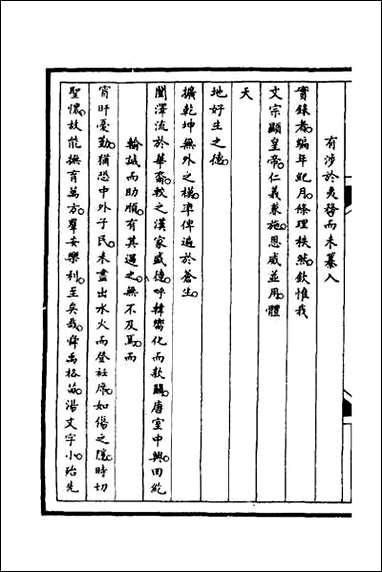 有涉於夷務而未纂入
實錄者編年紀月條理秩然欽惟我
文宗顯皇帝仁義兼施恩威並用體
天
地好生之德
擴乾坤無外之模準俾遍於蒼生
闓澤流於華裔較之漢家威德呼韓嚮化而款關唐室中興回紇
輸誠而助順有其過之無不及焉而
宵旰憂勤猶恐中外子民未盡出水火而登衽席如傷之隱時切
聖懷故能撫育萬方羣安樂利至矣哉舜禹格苗湯文字小殆先